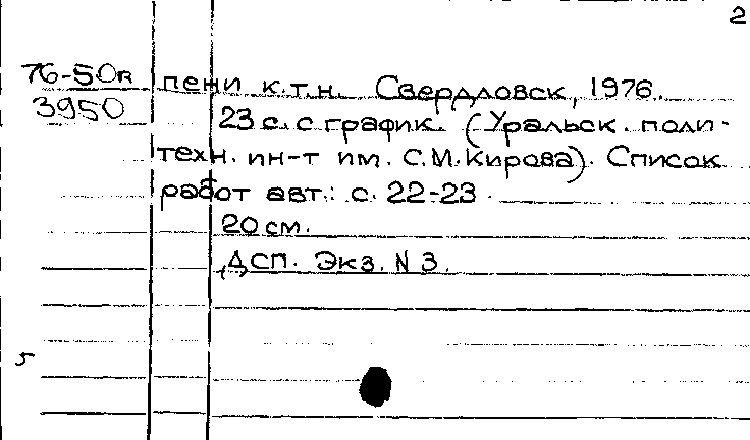 2
76-50л
3950
пени к.т.н. Свердловск, 1976.
23 с. с график. (Уральск. поли-
техн. ин-т им. С.М. Кирова). Список
работ авт.: с. 22-23.
20 см.
ДСП. Экз. N 3.
5